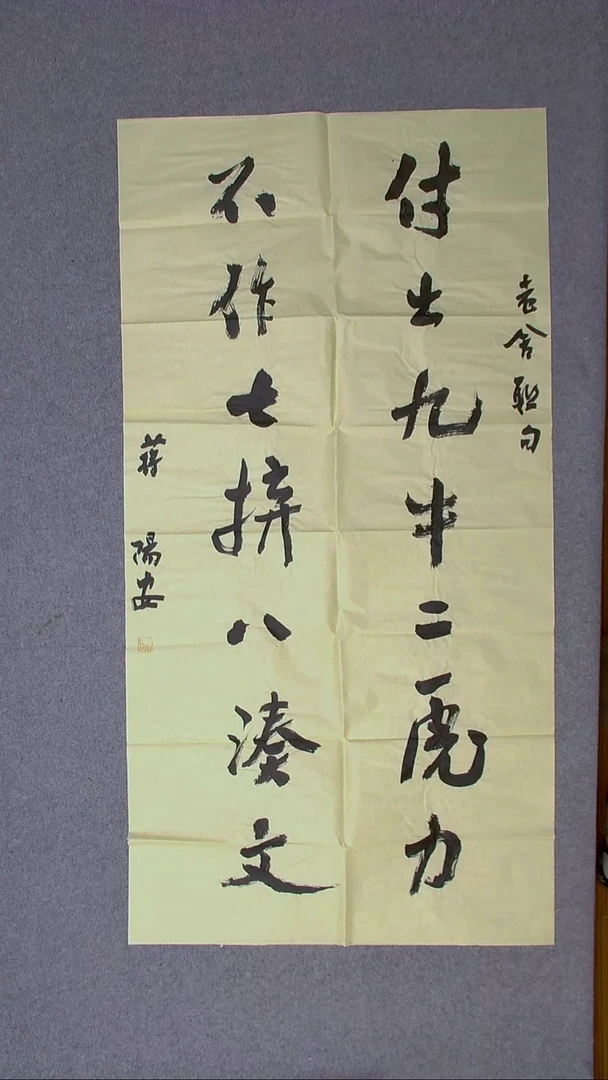 老舍联句
付出九牛二虎力
不作七拼八凑文
蒋阳安